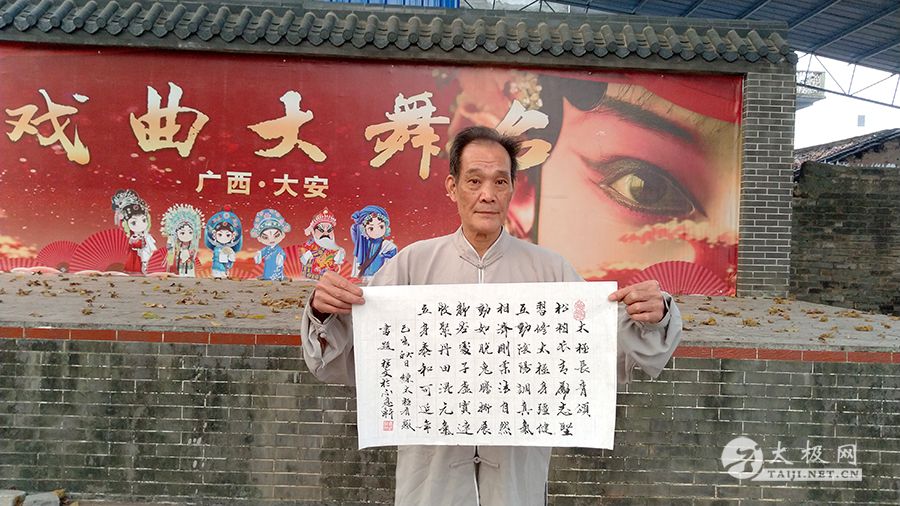 戏曲大舞台
广西·大安
太極長青頌
松柏常青勵志堅
習修太極身強健
互動陰陽調真氣
相濟剛柔法自然
動如脫兔騰挪展
靜若處子虛實連
收聚丹田混元氣
立身泰和可延年
己亥秋日練太極有感
書題
太极网
TAIJI.NET.CN